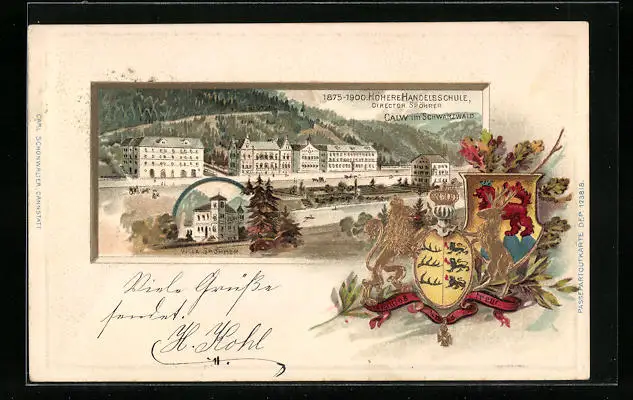 1875-1900. HÖHERE HANDELSSCHULE,
DIRECTOR SPÖHRER
CALW im SCHWARZWALD.
VILLA SPÖHRER
Viele Grüße
sendet.
H. Kohl
CARL SCHÖNWALTER, CANNSTATT.
PASSEPARTOUTKARTE DEP. 123818.